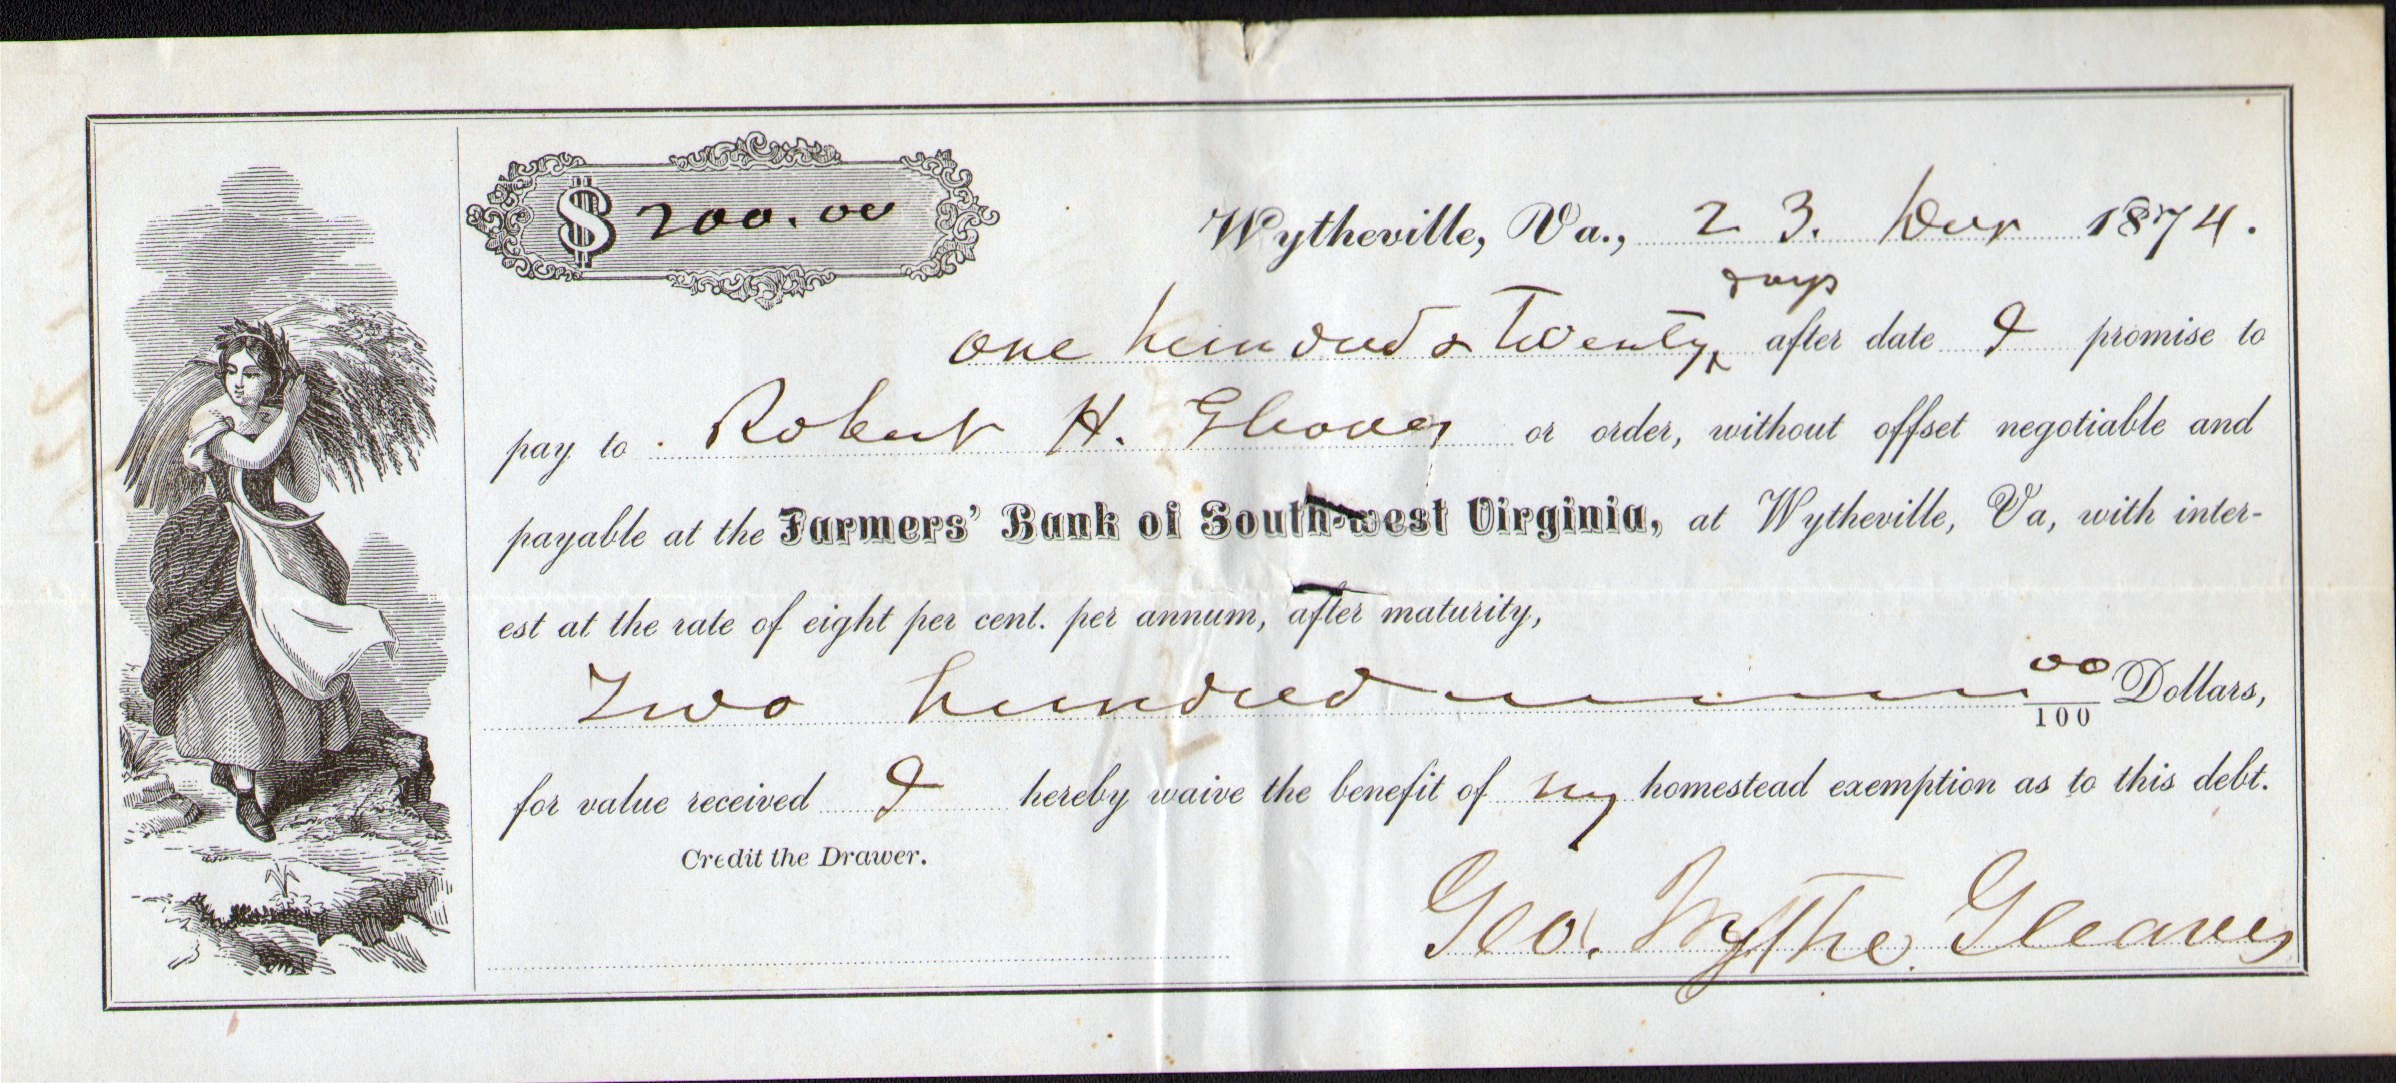 $ 200.00
Wytheville, Va., 23. Decr 1874.
days
one hundred & Twenty after date I promise to
pay to Robert H. or order, without offset negotiable and
payable at the Farmers' Bank of South-west Virginia, at Wytheville, Va, with inter-
est at the rate of eight per cent. per annum, after maturity,
Two hundred 00/100 Dollars,
for value received I hereby waive the benefit of my homestead exemption as to this debt.
Credit the Drawer.
Geo. Wythe Gleaves